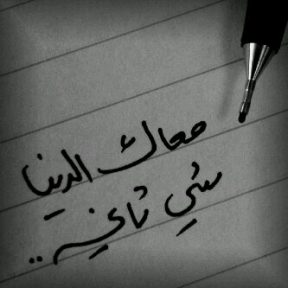 معاك الدنيا
شي ثاني..